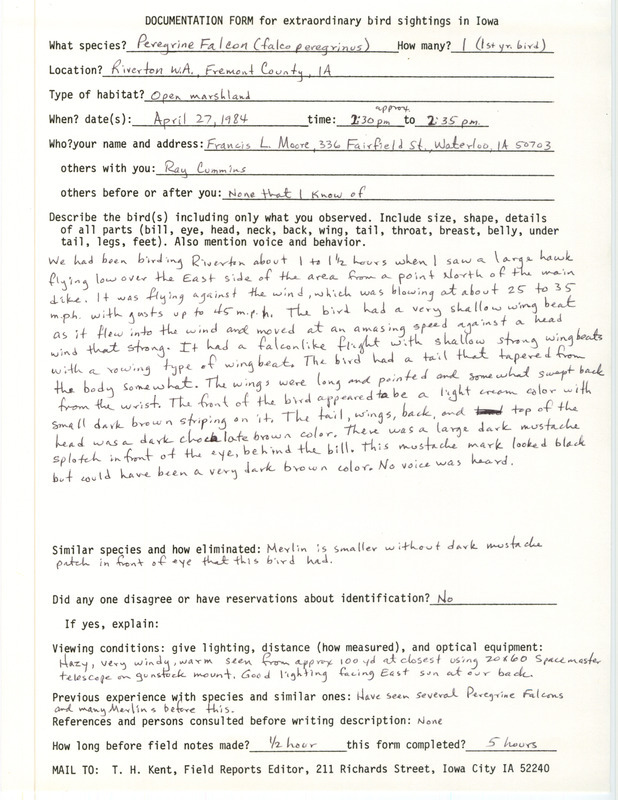 DOCUMENTATION FORM for extraordinary bird sightings in Iowa
What species? Peregrine Falcon (falco peregrinus) How many? 1 (1st yr. bird)
Location? Riverton W.A., Fremont County, IA
Type of habitat? Open marshland
When? date(s): April 27, 1984 time: approx. 2:30 pm to 2:35 pm.
Who?your name and address: Francis L. Moore, 336 Fairfield St., Waterloo, IA 50703
others with you: Ray Cummins
others before or after you: None that I know of
Describe the bird(s) including only what you observed. Include size, shape, details
of all parts (bill, eye, head, neck, back, wing, tail, throat, breast, belly, under
tail, legs, feet). Also mention voice and behavior.
We had been birding Riverton about 1 to 1½ hours when I saw a large hawk
flying low over the East side of the area from a point North of the main
dike. It was flying against the wind, which was blowing at about 25 to 35
m.p.h. with gusts up to 45 m.p.h. The bird had a very shallow wing beat
as it flew into the wind and moved at an amasing speed against a head
wind that strong. It had a falconlike flight with shallow strong wingbeats
with a rowing type of wingbeat. The bird had a tail that tapered from
the body somewhat. The wings were long and pointed and somewhat swept back
from the wrist. The front of the bird appeared to be a light cream color with
small dark brown striping on it. The tail, wings, back, and top of the
head was a dark chocolate brown color. There was a large dark mustache
splotch in front of the eye, behind the bill. This mustache mark looked black
but could have been a very dark brown color. No voice was heard.
Similar species and how eliminated: Merlin is smaller without dark mustache
patch in front of eye that this bird had.
Did any one disagree or have reservations about identification? No
If yes, explain:
Viewing conditions: give lighting, distance (how measured), and optical equipment:
Hazy, very windy, warm seen from approx 100 yd at closest using 20x60 Spacemaster
telescope on gunstock mount. Good lighting facing East sun at our back.
Previous experience with species and similar ones: Have seen several Peregrine Falcons
and many Merlins before this.
References and persons consulted before writing description: None
How long before field notes made? ½ hour this form completed? 5 hours
MAIL TO: T. H. Kent, Field Reports Editor, 211 Richards Street, Iowa City IA 52240